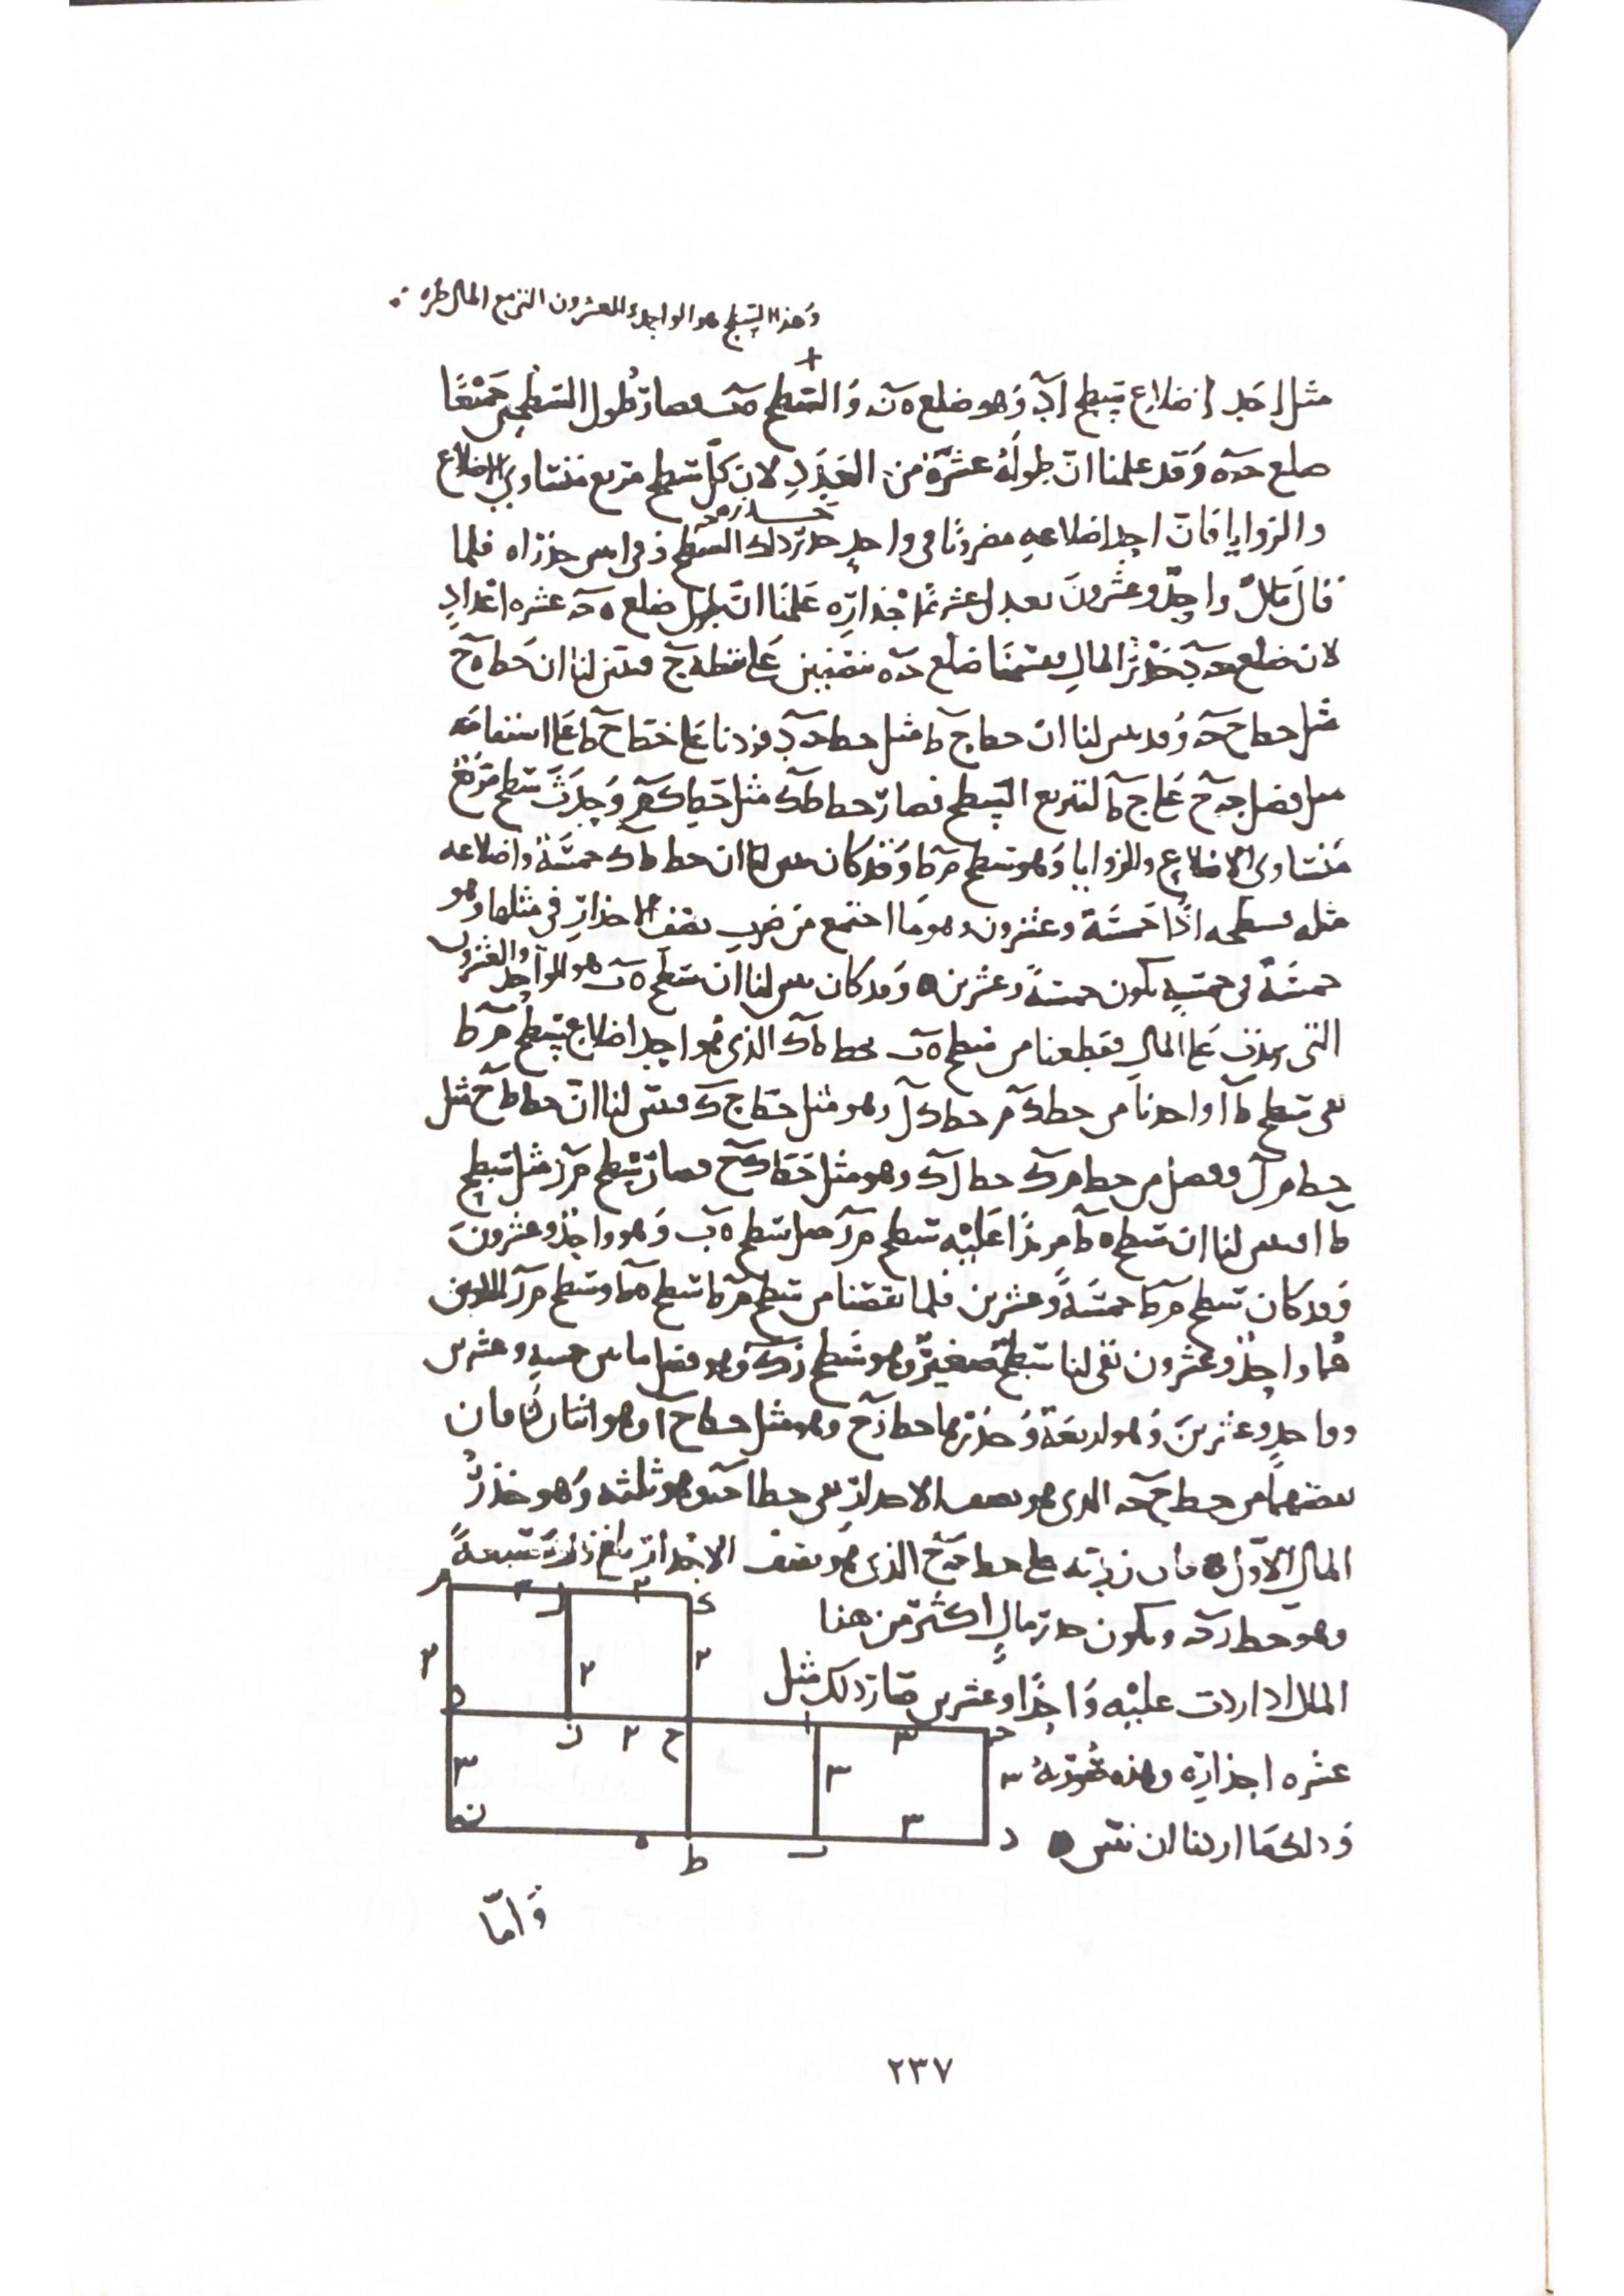 وهذا السطح هو الواحد والعشرون التي مع المال
مثل احد اضلاع سطح اد وهو ضلع ه ن والسطح ه ب فصار طول السطحين جميعا
ضلع حه وقد علمنا ان طوله عشرة من العدد لان كل سطح مربع متساوي الاضلاع
والزوايا فان احد اضلاعه مضروبا في واحد جذر ذلك السطح وفي اثنين جذراه فلما
قال مال وواحد وعشرون يعدل عشرة اجذاره علمنا ان طول ضلع ه ح عشرة اعداد
لان ضلع حد جذر المال فقسمنا ضلع حه نصفين على نقطة ح فتبين لنا ان خط ه ح
مثل خط ح ح وقد تبين لنا ان خط ح ط مثل خط حد فزدنا على خط ح ط على استقامته
مثل فضل حح على ح ط لتربيع السطح فصار خط طك مثل خط كم وحدث سطح مربع
متساوي الاضلاع والزوايا وهو سطح م ط وقد كان تبين لنا ان خط طك خمسة واضلاعه
مثله فسطحه اذا خمسة وعشرون وهو ما اجتمع من ضرب نصف الاجذار في مثلها وهو
خمسة في خمسة يكون خمسة وعشرين وقد كان تبين لنا ان سطح ه ب هو الواحد والعشرون
التي زيدت على المال فقطعنا من سطح ه ب بخط طك الذي هو احد اضلاع سطح م ط
بقي سطح ط ا واخذنا من خط كم خط كل وهو مثل خط ح ك فتبين لنا ان خط طح مثل
خط م ل وفضل من خط مك خط لك وهو مثل خط كح فصار سطح م ر مثل سطح
ط ا فتبين لنا ان سطح ه ط مزادا عليه سطح م ر مثل سطح ه ب وهو واحد وعشرون
وقد كان سطح م ط خمسة وعشرين فلما نقصنا من سطح م ط سطح ه ط وسطح م ر اللذين
هما واحد وعشرون بقي لنا سطح صغير وهو سطح رك وهو فضل ما بين خمسة وعشرين
وواحد وعشرين وهو اربعة وجذرها خط رح وهو مثل خط ح ا وهو اثنان فان
نقصتهما من خط ح ح الذي هو نصف الاجذار بقي خط اح وهو ثلثة وهو جذر
المال الاول فان زدته على خط حح الذي هو نصف الاجذار بلغ ذلك سبعة
وهو خط رح ويكون جذر مال اكثر من هذا
المال اذا زدت عليه واحدا وعشرين صار ذلك مثل
عشرة اجذاره وهذه صورته
وذلك ما اردنا ان نبين
م
٣
ل
٢
ك
٢
٢
٢
ه
ز
٢
ح
ا
٣
ح
٣
٣
٣
٣
ن
ه
ط
ب
د
واما
٢٣٧